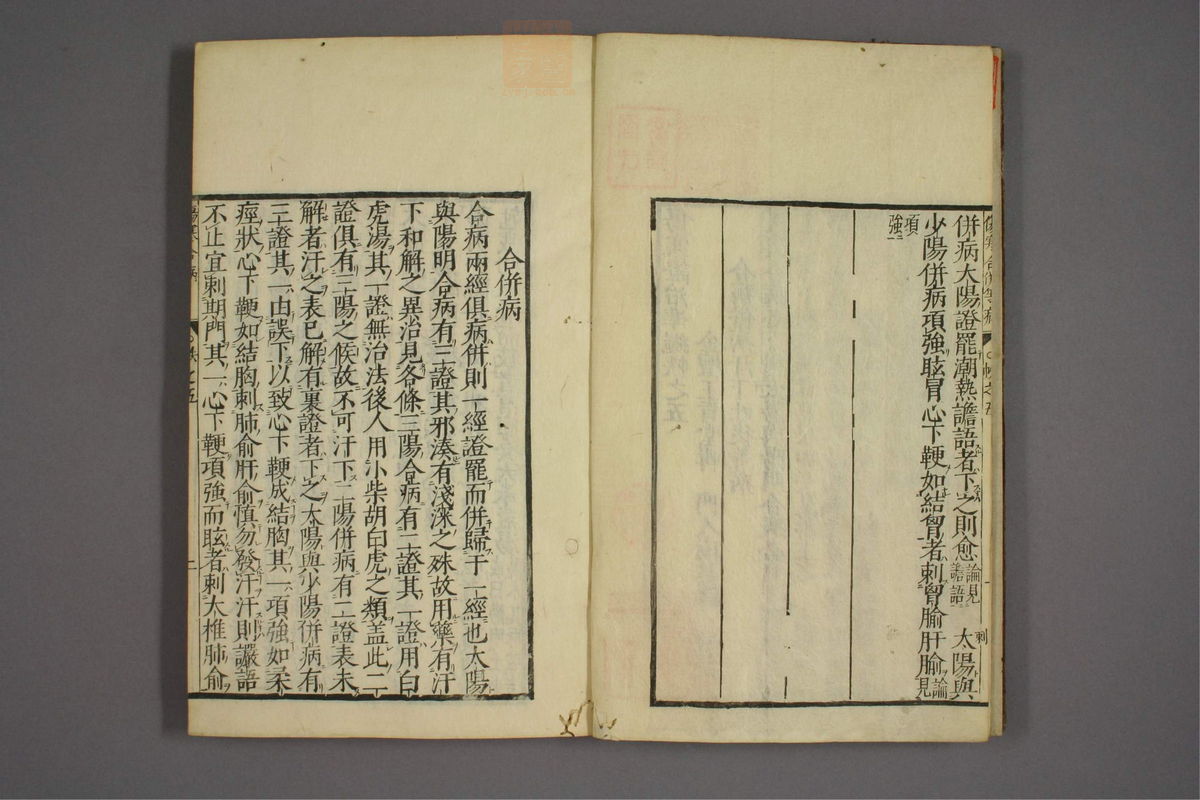 併病大陽證罷潮熱譫語者下之則愈論見譫語 太陽與
少陽併病項強眩冒心下鞕如結胷者刺胷腧肝腧論見
項強
合併病
合病兩經俱病併則一經證罷而併歸于一經也太陽
與陽明合病有三證其邪湊有淺深之殊故用藥有汗
下和解之異治見各條三陽合病有二證其一證用白
虎湯其一證無治法後人用小柴胡白虎之類盖此二
證俱有三陽之候故不可汗下二陽併病有二證表未
解者汗之表已解有裏證者下之太陽與少陽併病有
三證其一由誤下以致心下鞕成結胸其一項強如柔
痙狀心下鞕如結胸刺肺俞肝俞慎勿發汗汗則讝語
不止宜刺期門其一心下鞕項強而眩者刺大椎肺俞